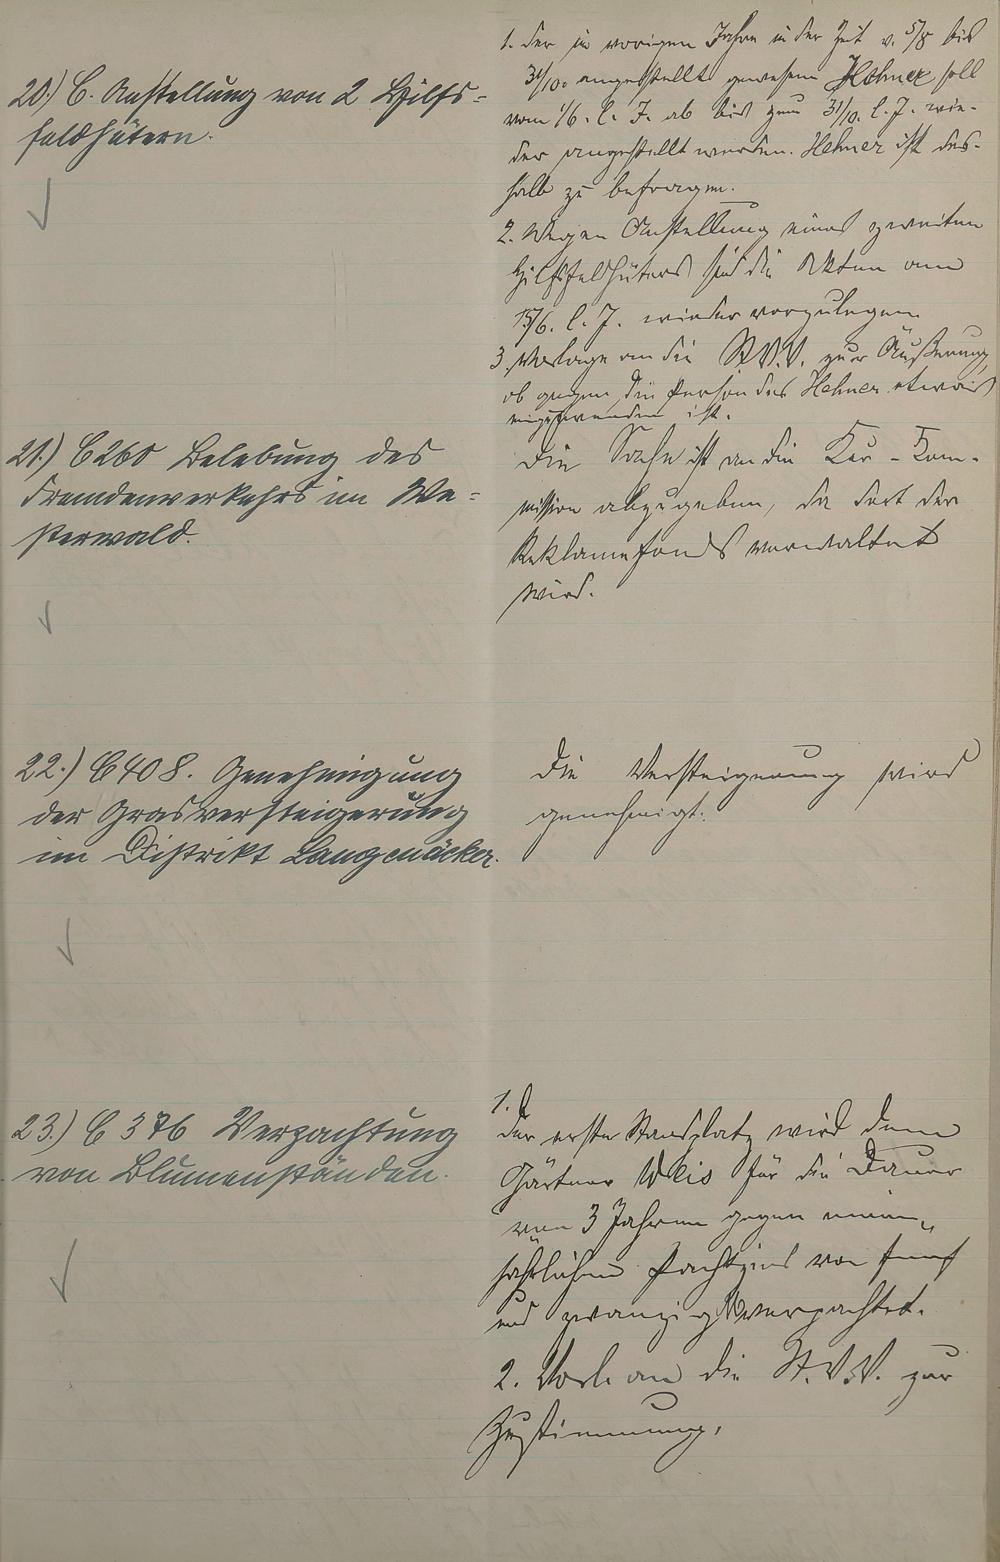 20.) C. Anstellung von 2 Hilfs-
feldhütern.
1. Der im vorigen Jahre in der Zeit v. 5/8 bis
31/10. angestellt gewesene Hehner soll
vom 1/6. l. J. ab bis zum 31/10. l. J. wie-
der angestellt werden. Hehner ist des-
halb zu befragen.
2. Wegen Anstellung eines zweiten
Hilfsfeldhüters sind die Akten am
15/6. l. J. wieder vorzulegen
3. Vorlage an die St.V.V. zur Äußerung,
ob gegen die Person des Hehner etwas
einzuwenden ist.
21.) C 260 Belebung des
Fremdenverkehrs im We-
sterwald.
Die Sache ist an die Kur-Kom-
mission abzugeben, da dort der
Reklamefonds verwaltet
wird.
22.) C 408. Genehmigung
der Grasversteigerung
im Distrikt Langenäcker.
Die Versteigerung wird
genehmigt.
23.) C 376 Verpachtung
von Blumenständen.
1.
Der erste Standplatz wird dem
Gärtner Weis für die Dauer
von 3 Jahren gegen einen
jährlichen Pachtzins von fünf
und zwanzig M verpachtet.
2. Vorl. an die St.V.V. zur
Zustimmung.